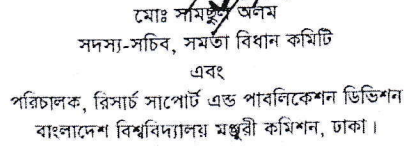 মোঃ সামছুল আলম
সদস্য-সচিব, সমতা বিধান কমিটি
এবং
পরিচালক, রিসার্চ সাপোর্ট এন্ড পাবলিকেশন ডিভিশন
বাংলাদেশ বিশ্ববিদ্যালয় মঞ্জুরী কমিশন, ঢাকা।